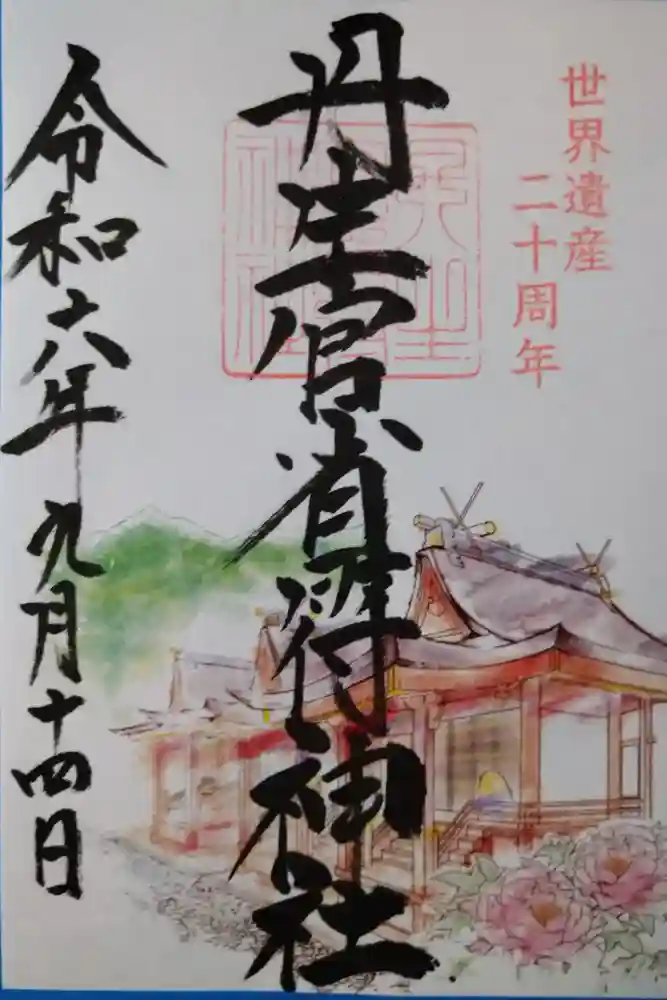 世界遺産
二十周年
丹生官省符神社
令和六年九月十四日